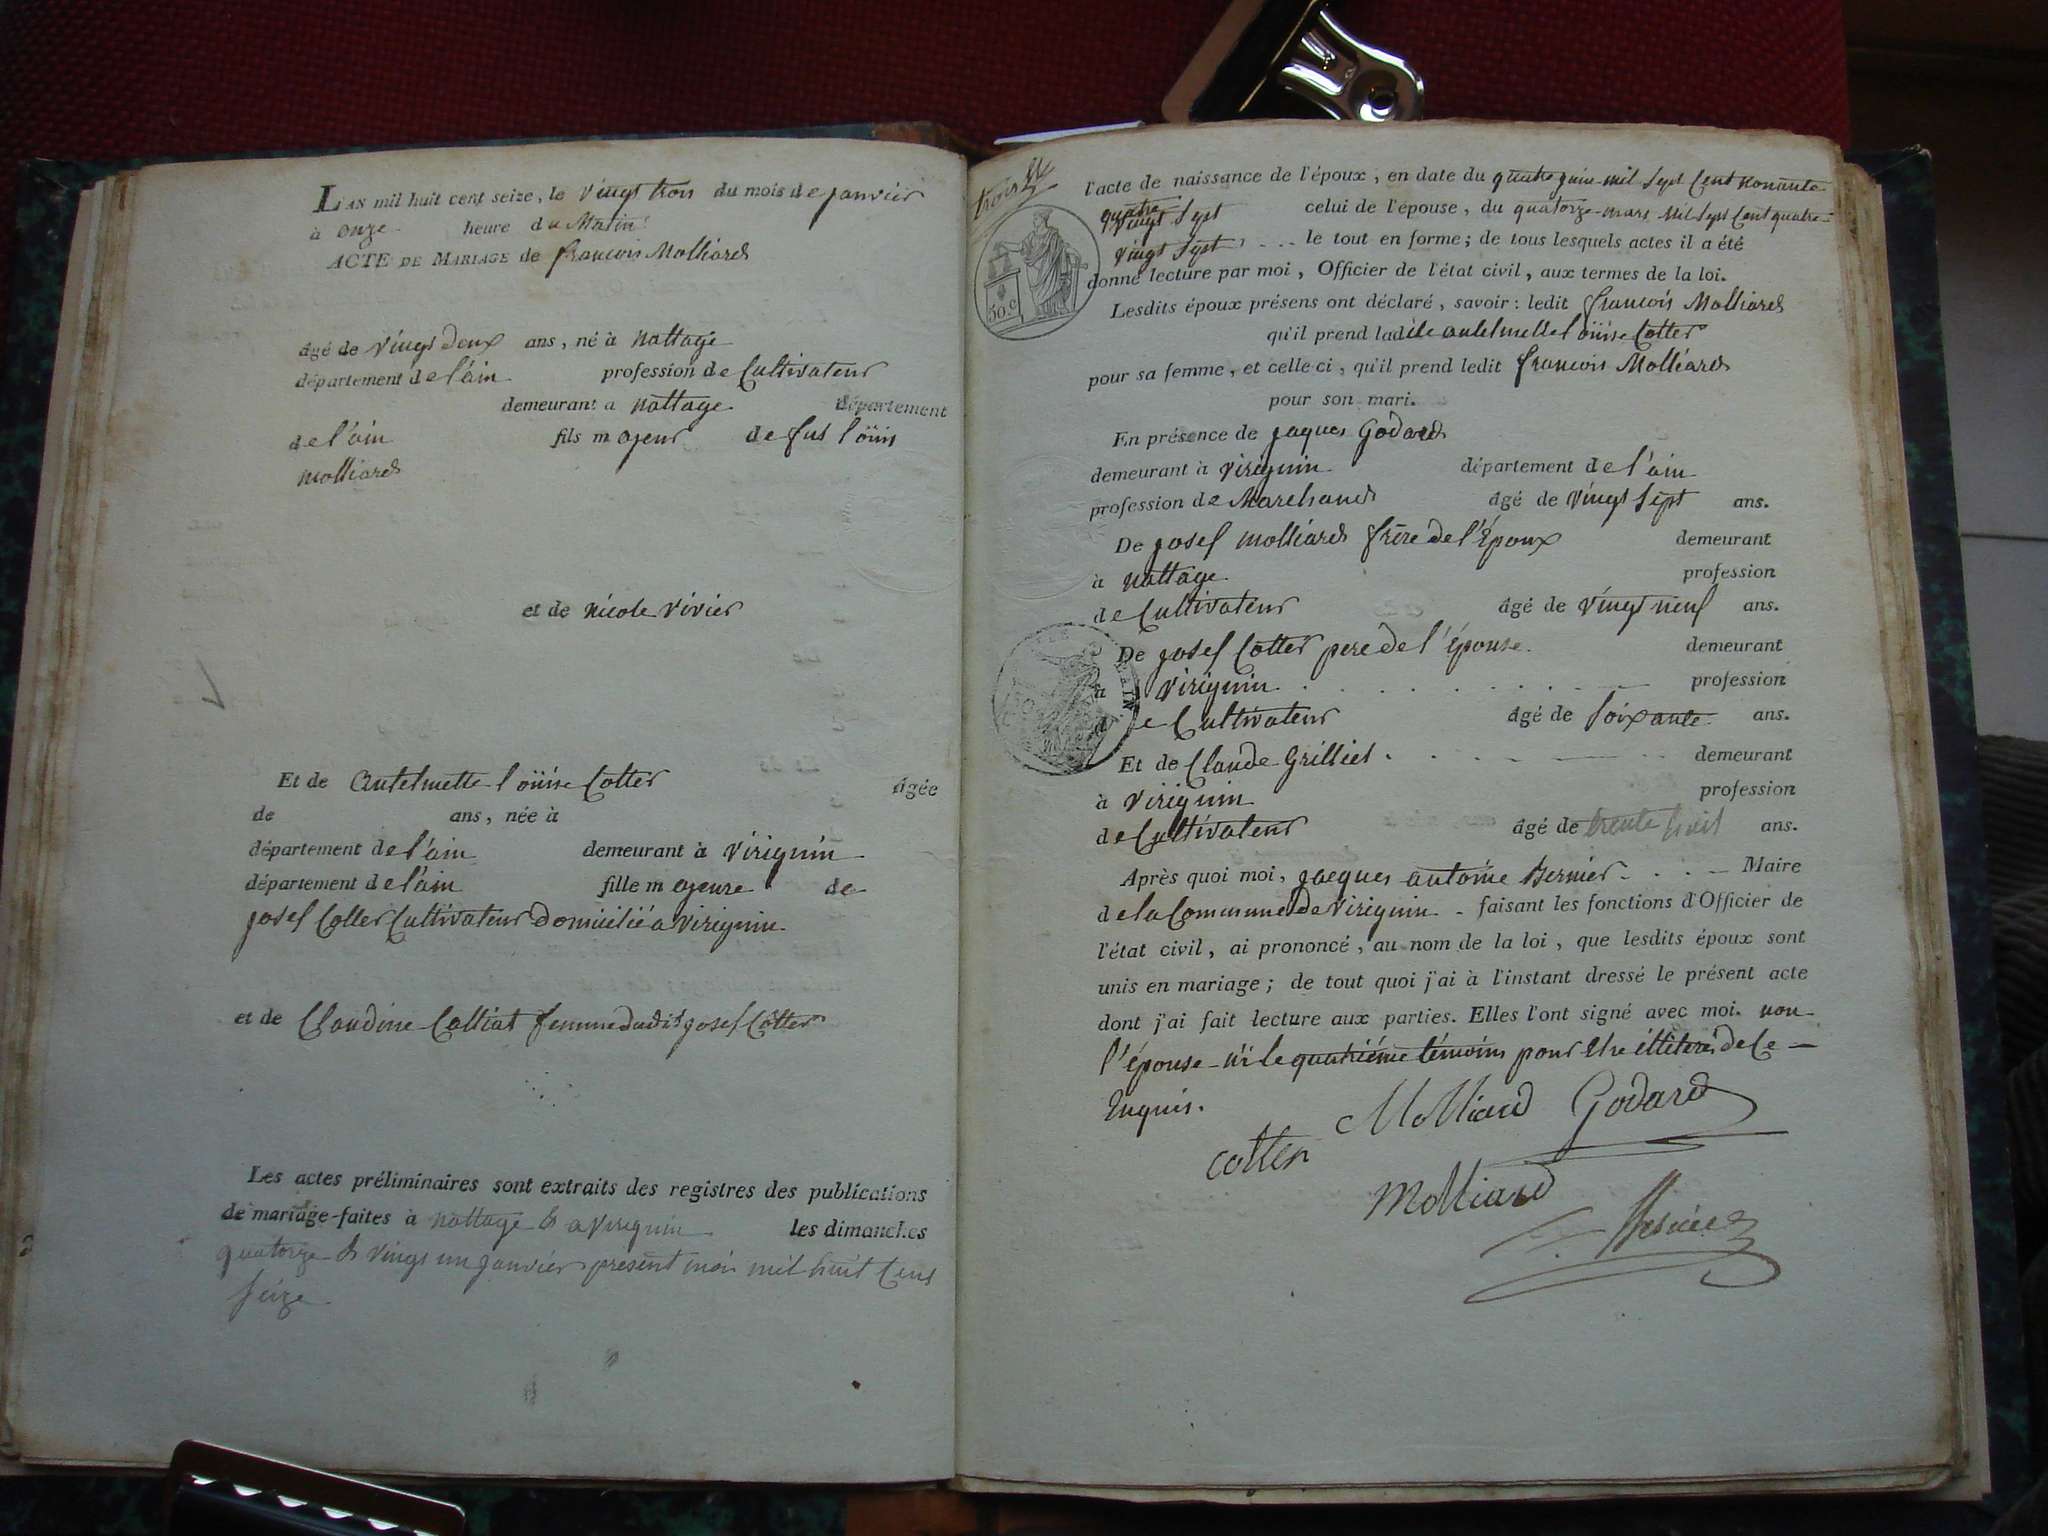 L'AN mil huit cent seize, le vingt trois du mois de janvier
à onze heure du Matin
ACTE DE MARIAGE de francois Molliard
âgé de vingt deux ans, né à nattage
département de l'ain profession de Cultivateur
demeurant a nattage département
de l'ain fils majeur de fut löuis
molliard
et de nicole vivier
Et de Antelmette löuise Cotter âgée
de ans, née à
département de l'ain demeurant à virignin
département de l'ain fille majeure de
josef Cotter Cultivateur domicilié a virignin
et de Claudine Calliat femme dudit josef Cotter
Les actes préliminaires sont extraits des registres des publications
de mariage faites à nattage & a virignin les dimanches
quatorze & vingt un janvier present mois mil huit Cent
seize
trois
l'acte de naissance de l'époux, en date du quatre juin mil sept Cent nonante
quatre
vingt sept celui de l'épouse, du quatorze mars mil sept Cent quatre
vingt sept le tout en forme; de tous lesquels actes il a été
donné lecture par moi, Officier de l'état civil, aux termes de la loi.
50 c
Lesdits époux présens ont déclaré, savoir: ledit francois Molliard
qu'il prend ladite antelmette löuise Cotter
pour sa femme, et celle-ci, qu'il prend ledit francois Molliard
pour son mari.
En présence de jaques Godard
demeurant à virignin département de l'ain
profession de Marchand âgé de vingt sept ans.
De josef molliard frère de l'Epoux demeurant
à nattage profession
de Cultivateur âgé de vingt neuf ans.
De josef Cotter pere de l'épouse demeurant
à virignin profession
de Cultivateur âgé de soixante ans.
Et de Claude Grilliet demeurant
à virignin profession
de Cultivateur âgé de trente huit ans.
Après quoi moi, jacques antoine Bernier Maire
de la Commune de virignin faisant les fonctions d'Officier de
l'état civil, ai prononcé, au nom de la loi, que lesdits époux sont
unis en mariage; de tout quoi j'ai à l'instant dressé le présent acte
dont j'ai fait lecture aux parties. Elles l'ont signé avec moi. non
l'épouse ni le quatrième témoins pour etre illiteré de Ce
Enquis.
Molliard Godard
cotter
Molliard